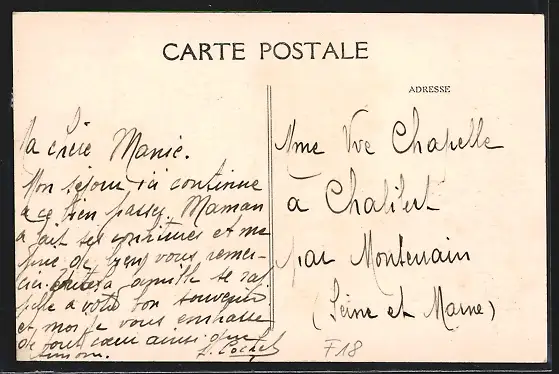 CARTE POSTALE
ADRESSE
Ma chère Marie.
Mon séjour ici continue
à ce bien passer. Maman
a fait ses confitures et me
prie de bien vous remer-
cier. toute la famille se rap
pelle à votre bon souvenir
et moi je vous embrasse
de tout cœur ainsi que
Simone.
Mme Vve Chapelle
à Chalitert
par Montereau
(Seine et Marne)
F18